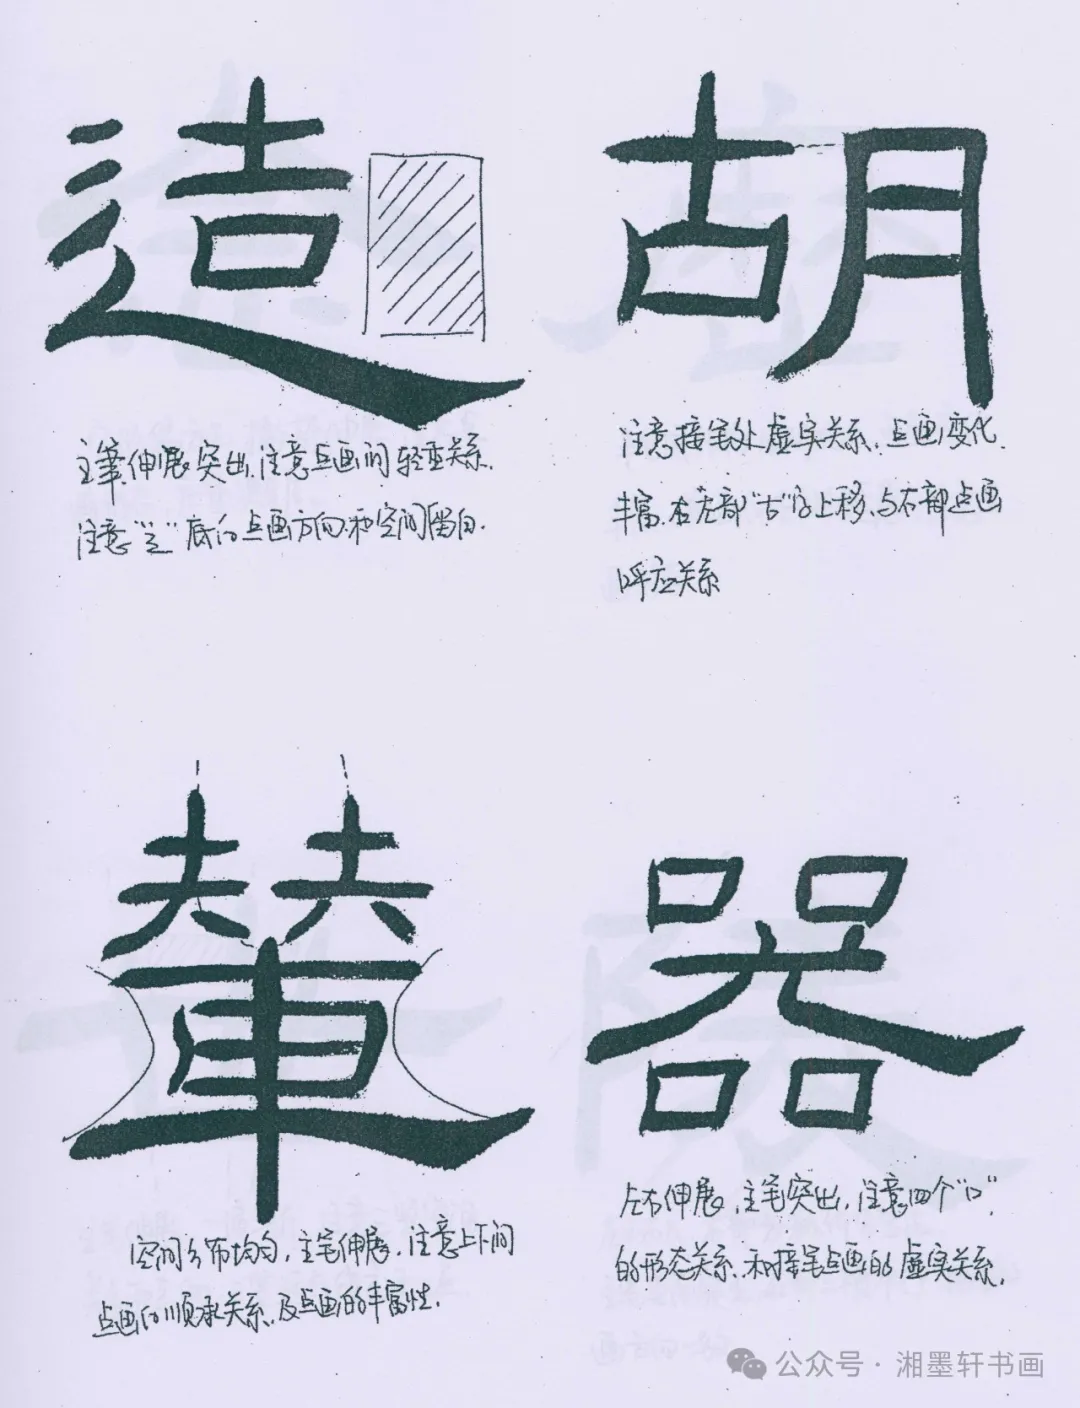 造
主筆伸展突出、注意点画间轻重关系.
注意"辶"底的点画方向和空间留白.
胡
注意接笔处虚实关系、点画变化
丰富、在左部"古"字上移、与右部点画
呼应关系
輦
空间分布均匀，主笔伸展，注意上下间
点画的顺承关系、及点画的丰富性.
器
左右伸展，主笔突出，注意四个"口"
的形态关系、和接笔点画的虚实关系.
公众号·湘墨轩书画